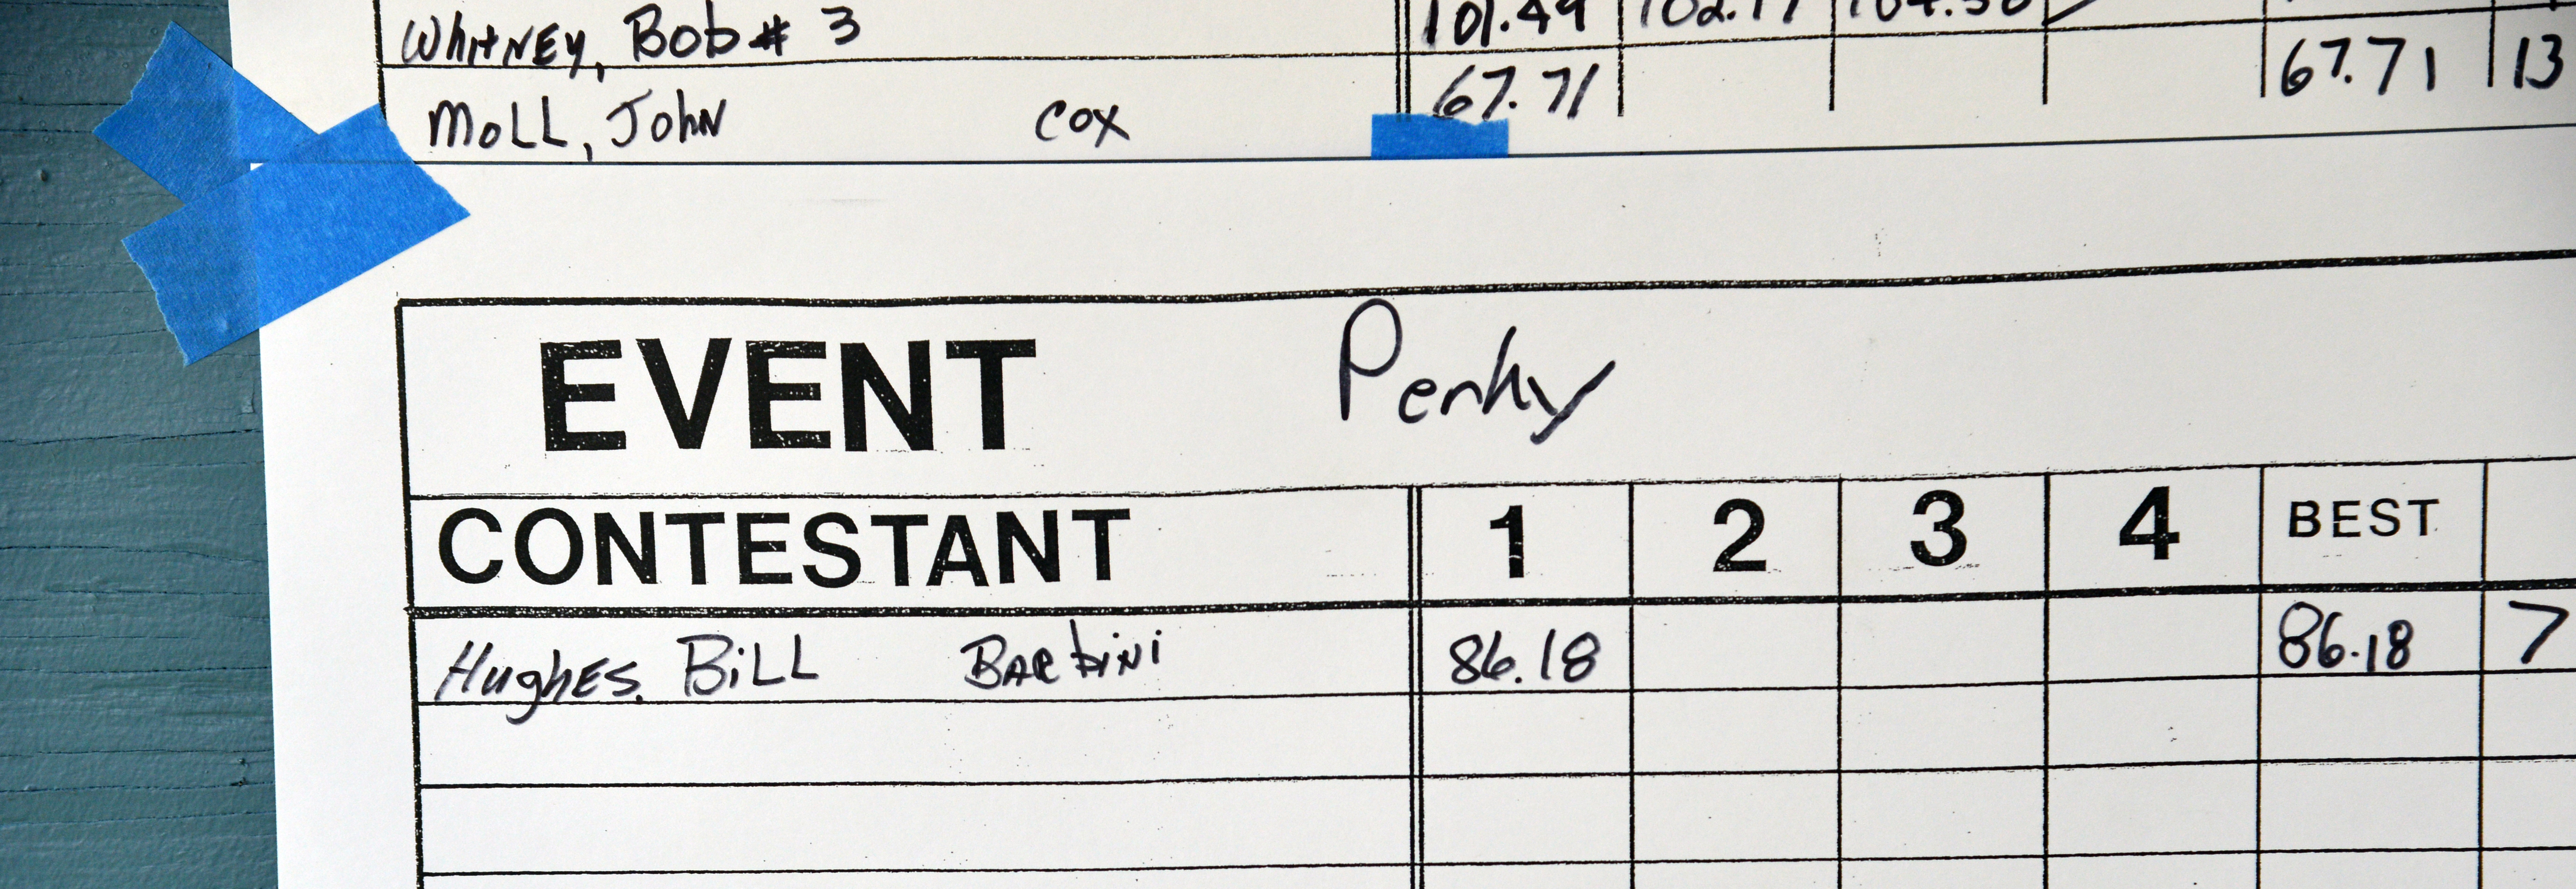 WhitNEy, Bob # 3 101.49
MoLL, John cox 67.71 67.71 13
EVENT Penky
CONTESTANT 1 2 3 4 BEST
HughES, BiLL BARBiNi 86.18 86.18 7